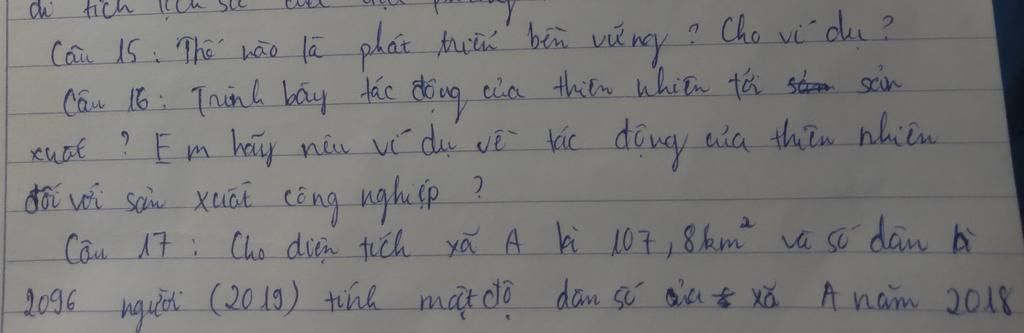 di tích lịch sử của địa phương
Câu 15 : Thế nào là phát triển bền vững ? Cho ví dụ ?
Câu 16 : Trình bày tác động của thiên nhiên tới sản
xuất ? Em hãy nêu ví dụ về tác động của thiên nhiên
đối với sản xuất công nghiệp ?
Câu 17 : Cho diện tích xã A là 107,8km² và số dân là
2096 người (2019) tính mật độ dân số của xã A năm 2018